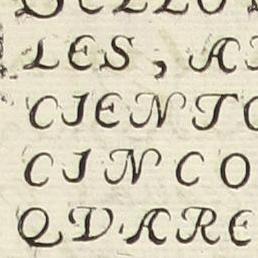 LES, A
CIENTO
CINCO
QVARE